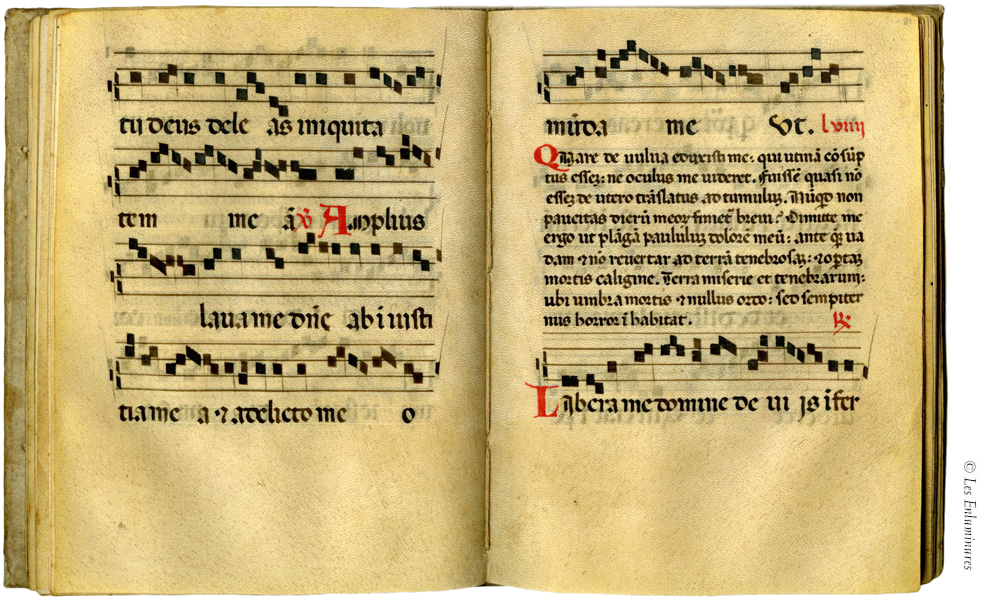 tu deus dele as iniquita
tem me am ℣ Amplius
lava me dn̄e ab iniusti
tia mea ⁊ a delicto me o
81
mūda me Ut. lviiij
Quare de vulva eduxisti me: qui utinā cōsūp
tus essez: ne oculus me videret. Fuissē quasi nō
essez de utero trāslatus ad tumuluz. Nūqd non
paucitas dierū meor finiet brevi? Dimitte me
ergo ut plāgā paululuz dolorē meū: ante q̄ va
dam ⁊ nō revertar ad terrā tenebrosaz: ⁊ optaz
mortis caligine. Terra miserie et tenebrarum:
ubi umbra mortis ⁊ nullus ordo: sed sempiter
nus horror ī habitat. ℟
Libera me domine de vi is īfer
© Les Enluminures